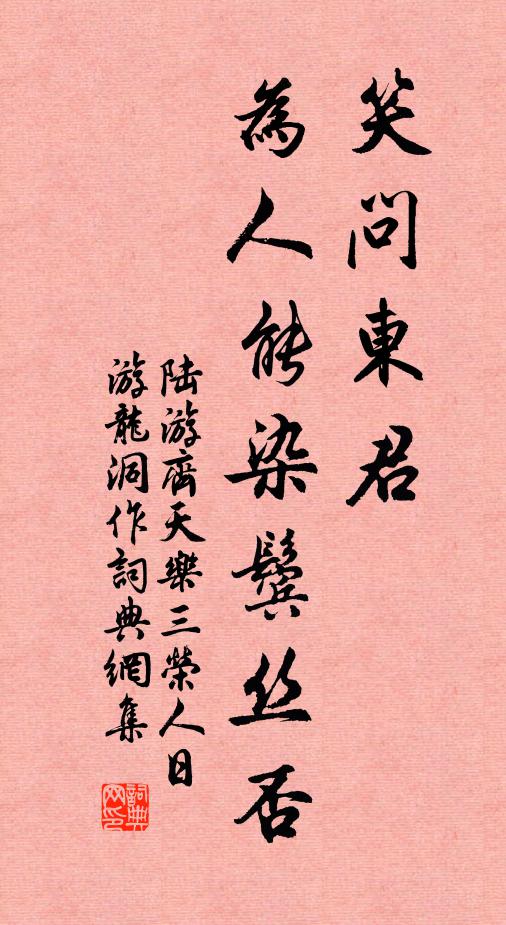 笑问東君
為人能染鬓丝否
陆游齊天樂三榮人日
游龍洞作詞典網集
詞典网印